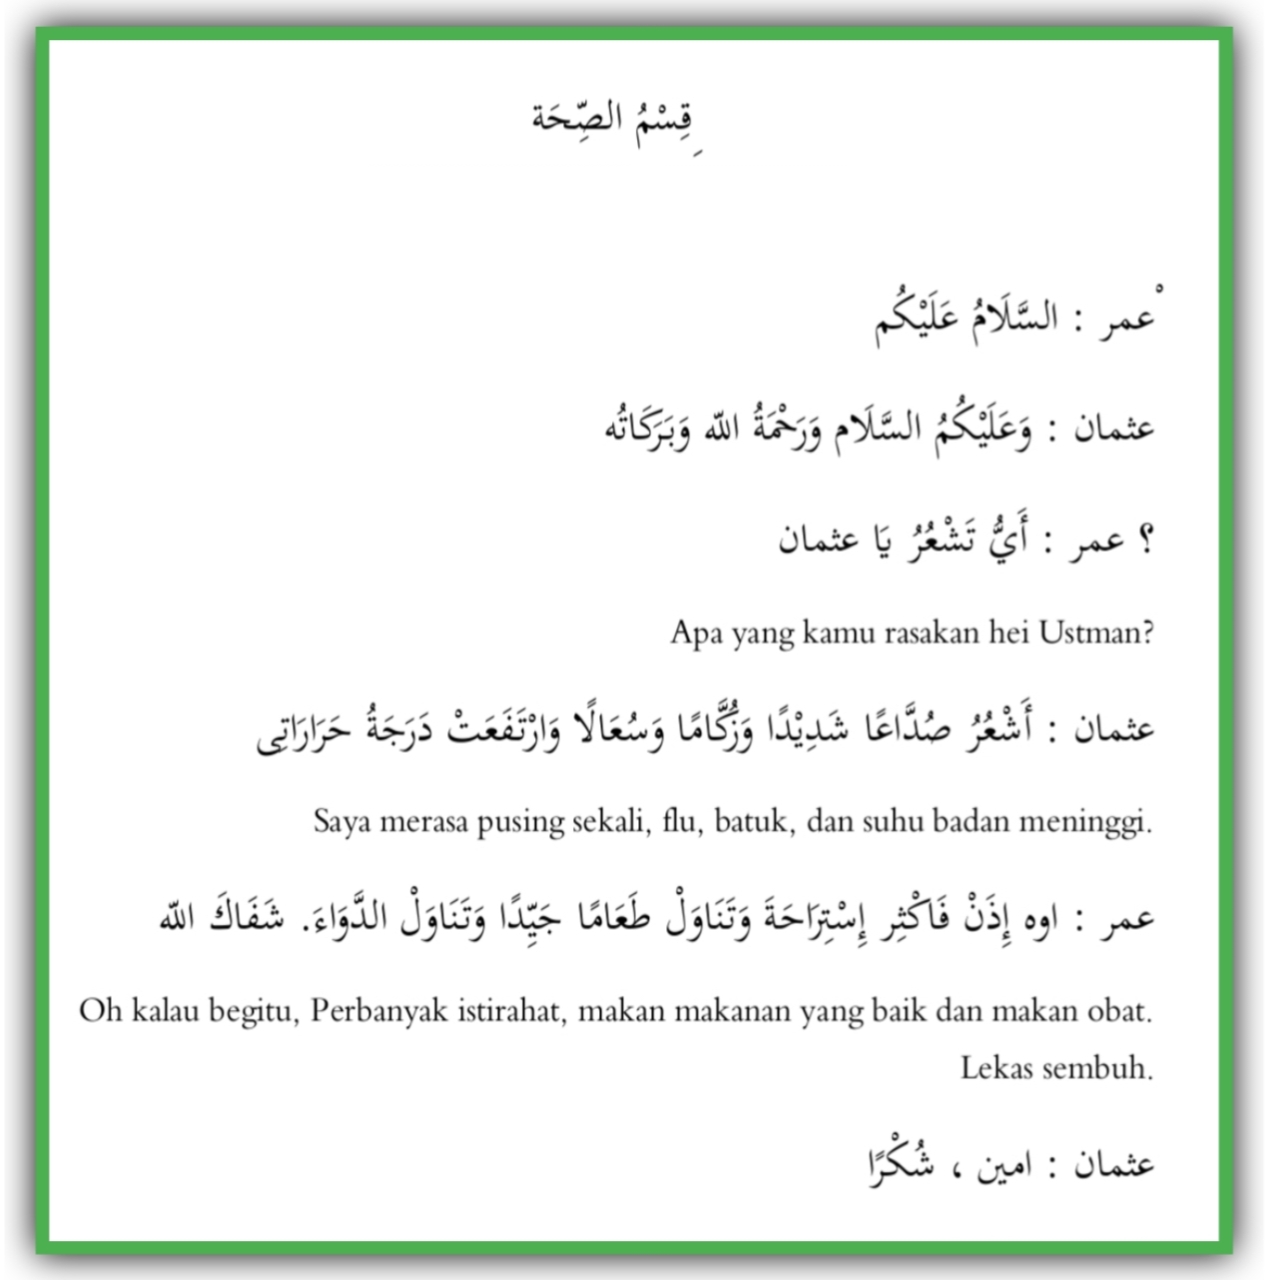 قِسْمُ الصِّحَة
عمر : السَّلَامُ عَلَيْكُمْ
عثمان : وَعَلَيْكُمُ السَّلَام وَرَحْمَةُ الله وَبَرَكَاتُه
؟ عمر : أَيُّ تَشْعُرُ يَا عثمان
Apa yang kamu rasakan hei Ustman?
عثمان : أَشْعُرُ صُدَّاعًا شَدِيْدًا وَزُكَّامًا وَسُعَالًا وَارْتَفَعَتْ دَرَجَةُ حَرَارَاتِى
Saya merasa pusing sekali, flu, batuk, dan suhu badan meninggi.
عمر : اوه إِذَنْ فَاكْثِر إِسْتِرَاحَةَ وَتَنَاوَلْ طَعَامًا جَيِّدًا وَتَنَاوَلْ الدَّوَاءَ. شَفَاكَ الله
Oh kalau begitu, Perbanyak istirahat, makan makanan yang baik dan makan obat.
Lekas sembuh.
عثمان : امين ، شُكْرًا